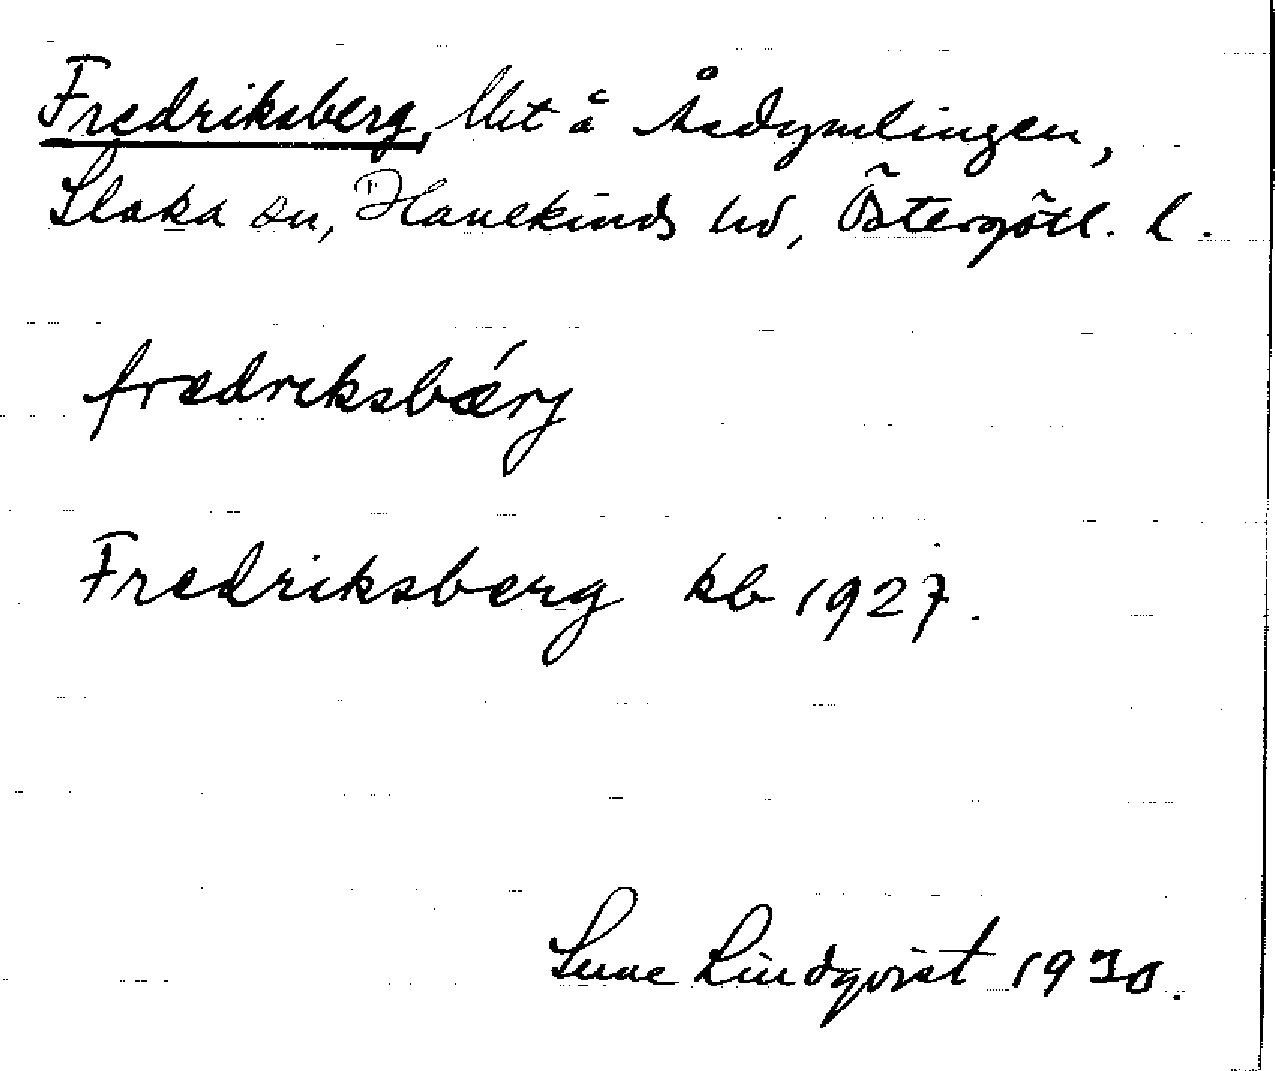 Fredriksberg, lht å Åsdymlingen,
Slaka sn, Hanekinds hd, Östergötl. l.
fredriksbærj
Fredriksberg kb 1927.
Sune Lindqvist 1930.